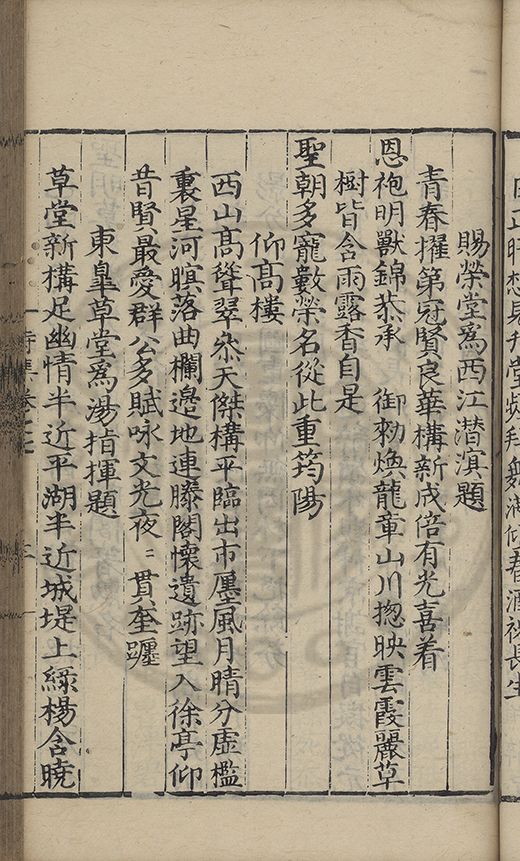 賜榮堂為西江潜溟題
青春擢第冠賢良華構新成倍有光喜着
恩袍明獸錦恭承 御勑煥龍章山川揔映雲霞麗草
樹皆含雨露香自是
聖朝多寵數榮名從此重筠陽
仰高樓
西山高聳翠叅天傑構平臨出市廛風月晴分虛檻
裏星河暝落曲欄邉地連滕閣懷遺跡望入徐亭仰
昔賢最愛群公多賦咏文光夜〻貫奎躔
東臯草堂為湯指揮題
草堂新構足幽情半近平湖半近城堤上綠楊含曉